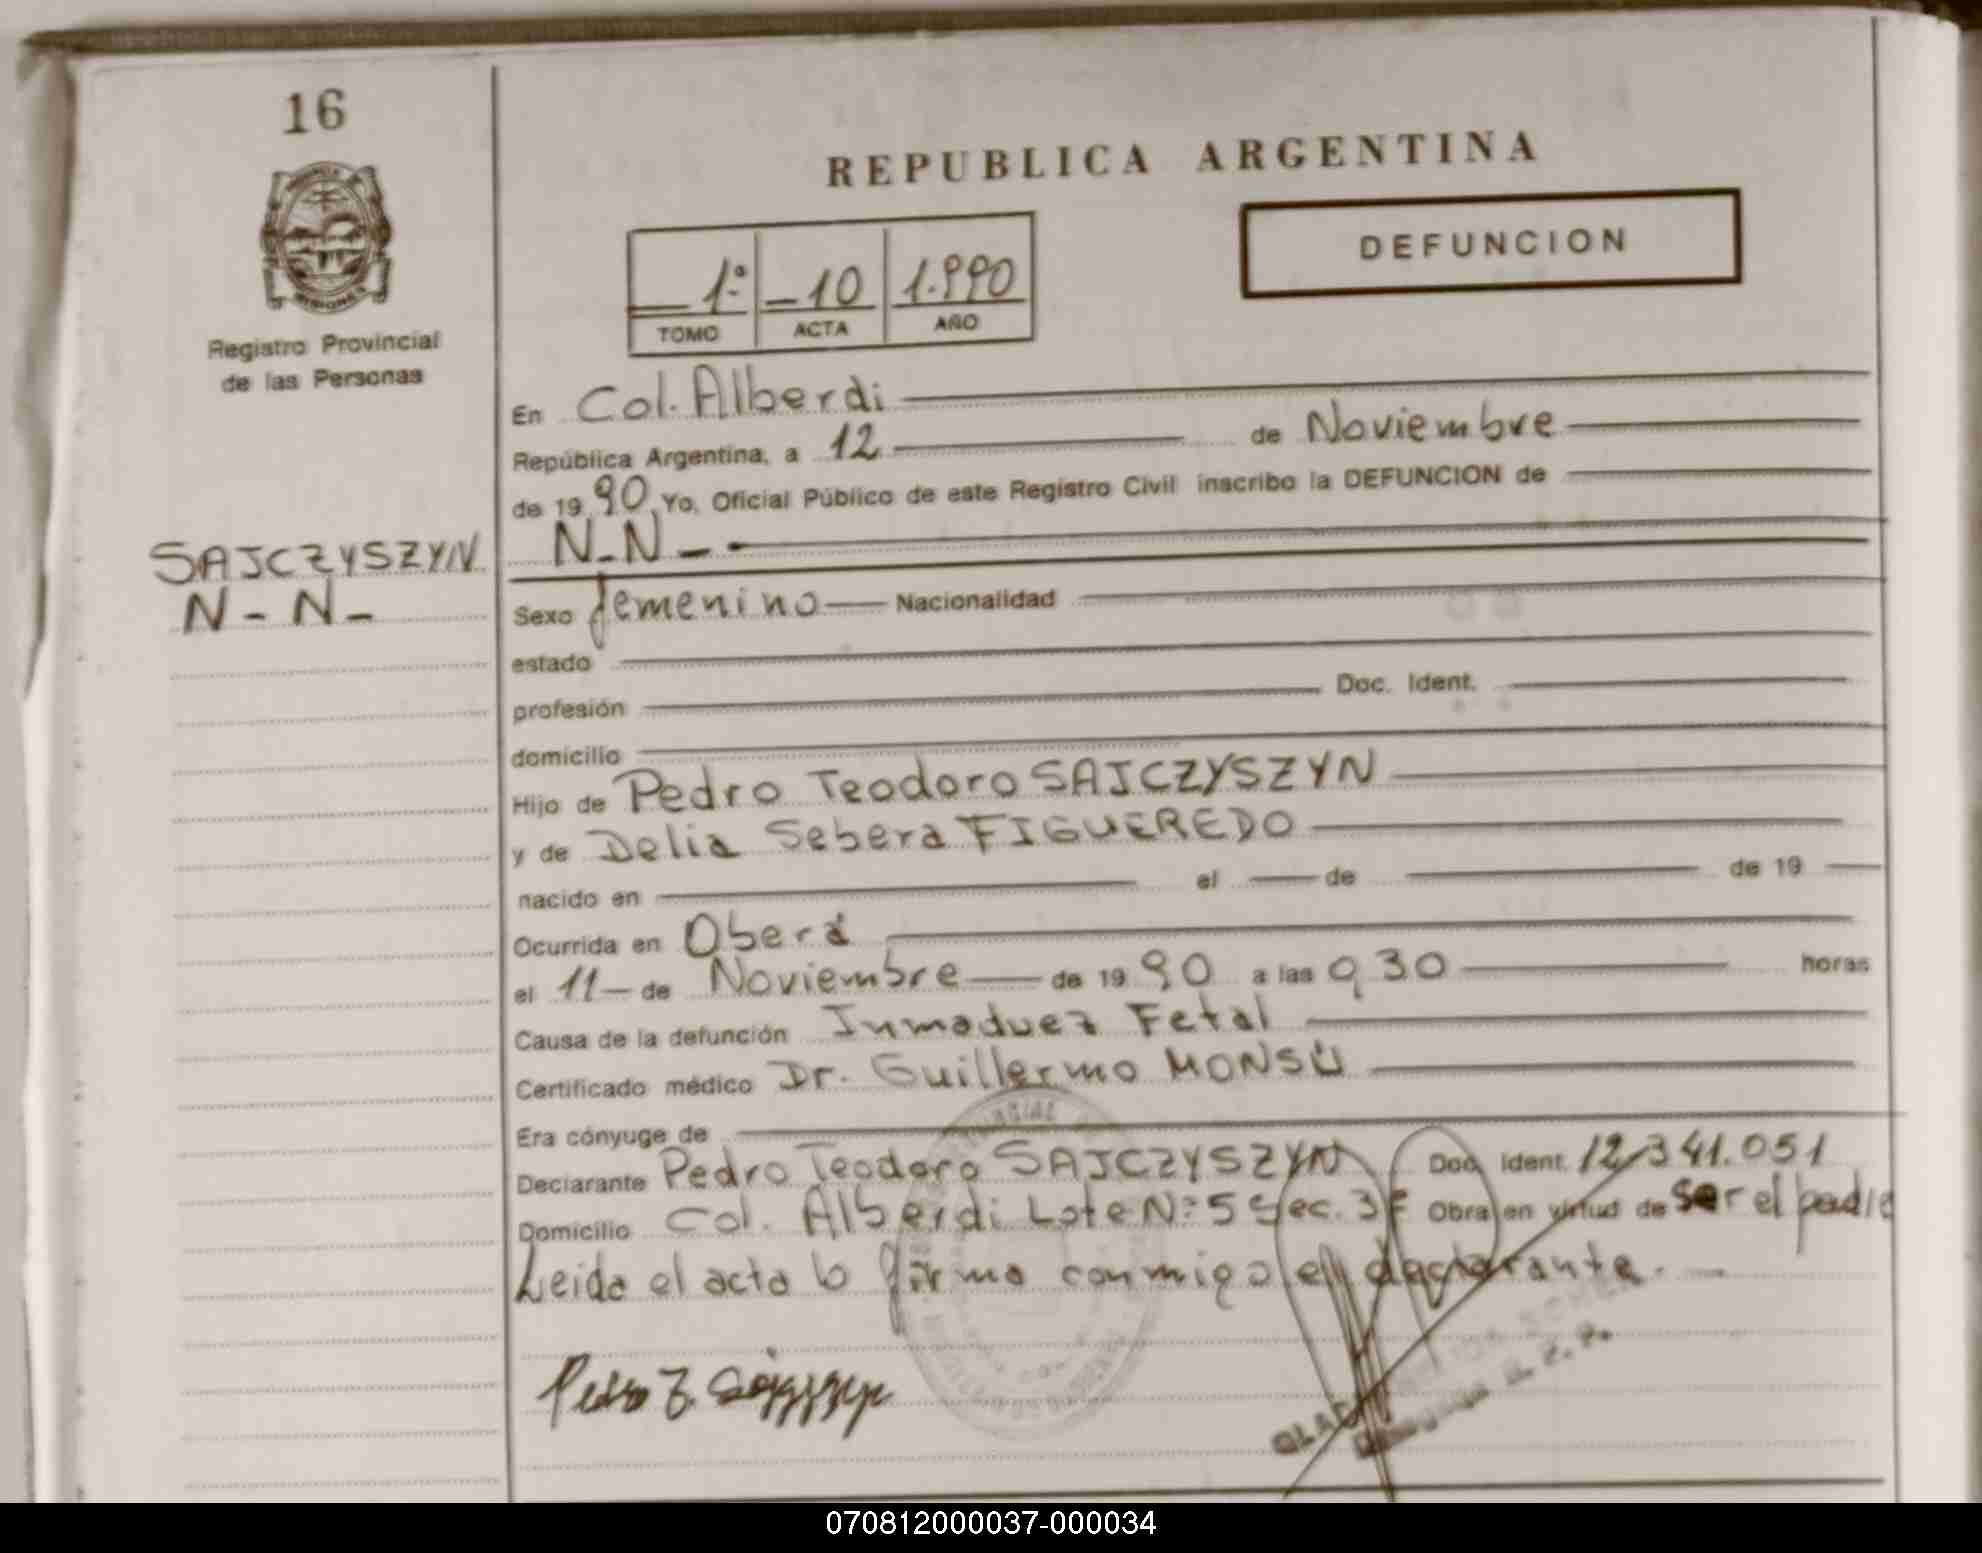 16
REPUBLICA ARGENTINA
DEFUNCION
1º 10 1.990
TOMO ACTA AÑO
MISIONES
Registro Provincial
de las Personas
En Col. Alberdi
República Argentina, a 12 de Noviembre
de 19 90 Yo, Oficial Público de este Registro Civil inscribo la DEFUNCION de
SAJCZYSZYN
N-N-
N-N-
Sexo femenino Nacionalidad
estado
profesión Doc. Ident.
domicilio
Hijo de Pedro Teodoro SAJCZYSZYN
y de Delia Sebera FIGUEREDO
nacido en el de de 19
Ocurrida en Oberá
el 11 de Noviembre de 19 90 a las 9 30 horas
Causa de la defunción Inmaduez Fetal
Certificado médico Dr. Guillermo MONSÚ
Era cónyuge de
Declarante Pedro Teodoro SAJCZYSZYN Doc. Ident. 12.341.051
Domicilio Col. Alberdi Lote Nº 5 Sec. 3ª Obra en virtud de ser el padre
Leida el acta la firma conmigo el declarante.-
Pedro T.
070812000037-000034